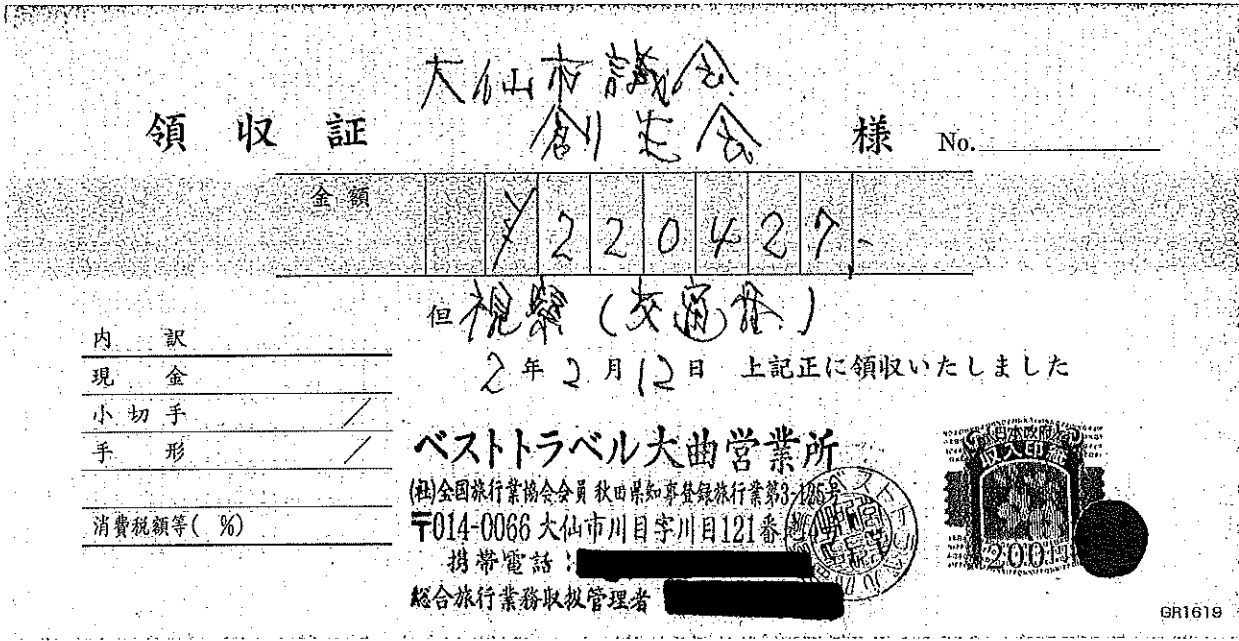 大仙市議会
領収証 創志会 様 No.
金額 ¥220427.-
但 視察(交通費)
2年2月12日 上記正に領収いたしました
内訳
現金
小切手 /
手形 /
消費税額等( %)
ベストトラベル大曲営業所
(社)全国旅行業協会会員 秋田県知事登録旅行業第3-125号
〒014-0066 大仙市川目字川目121番
携帯電話:
総合旅行業務取扱管理者
収入印紙
200円
GR1619